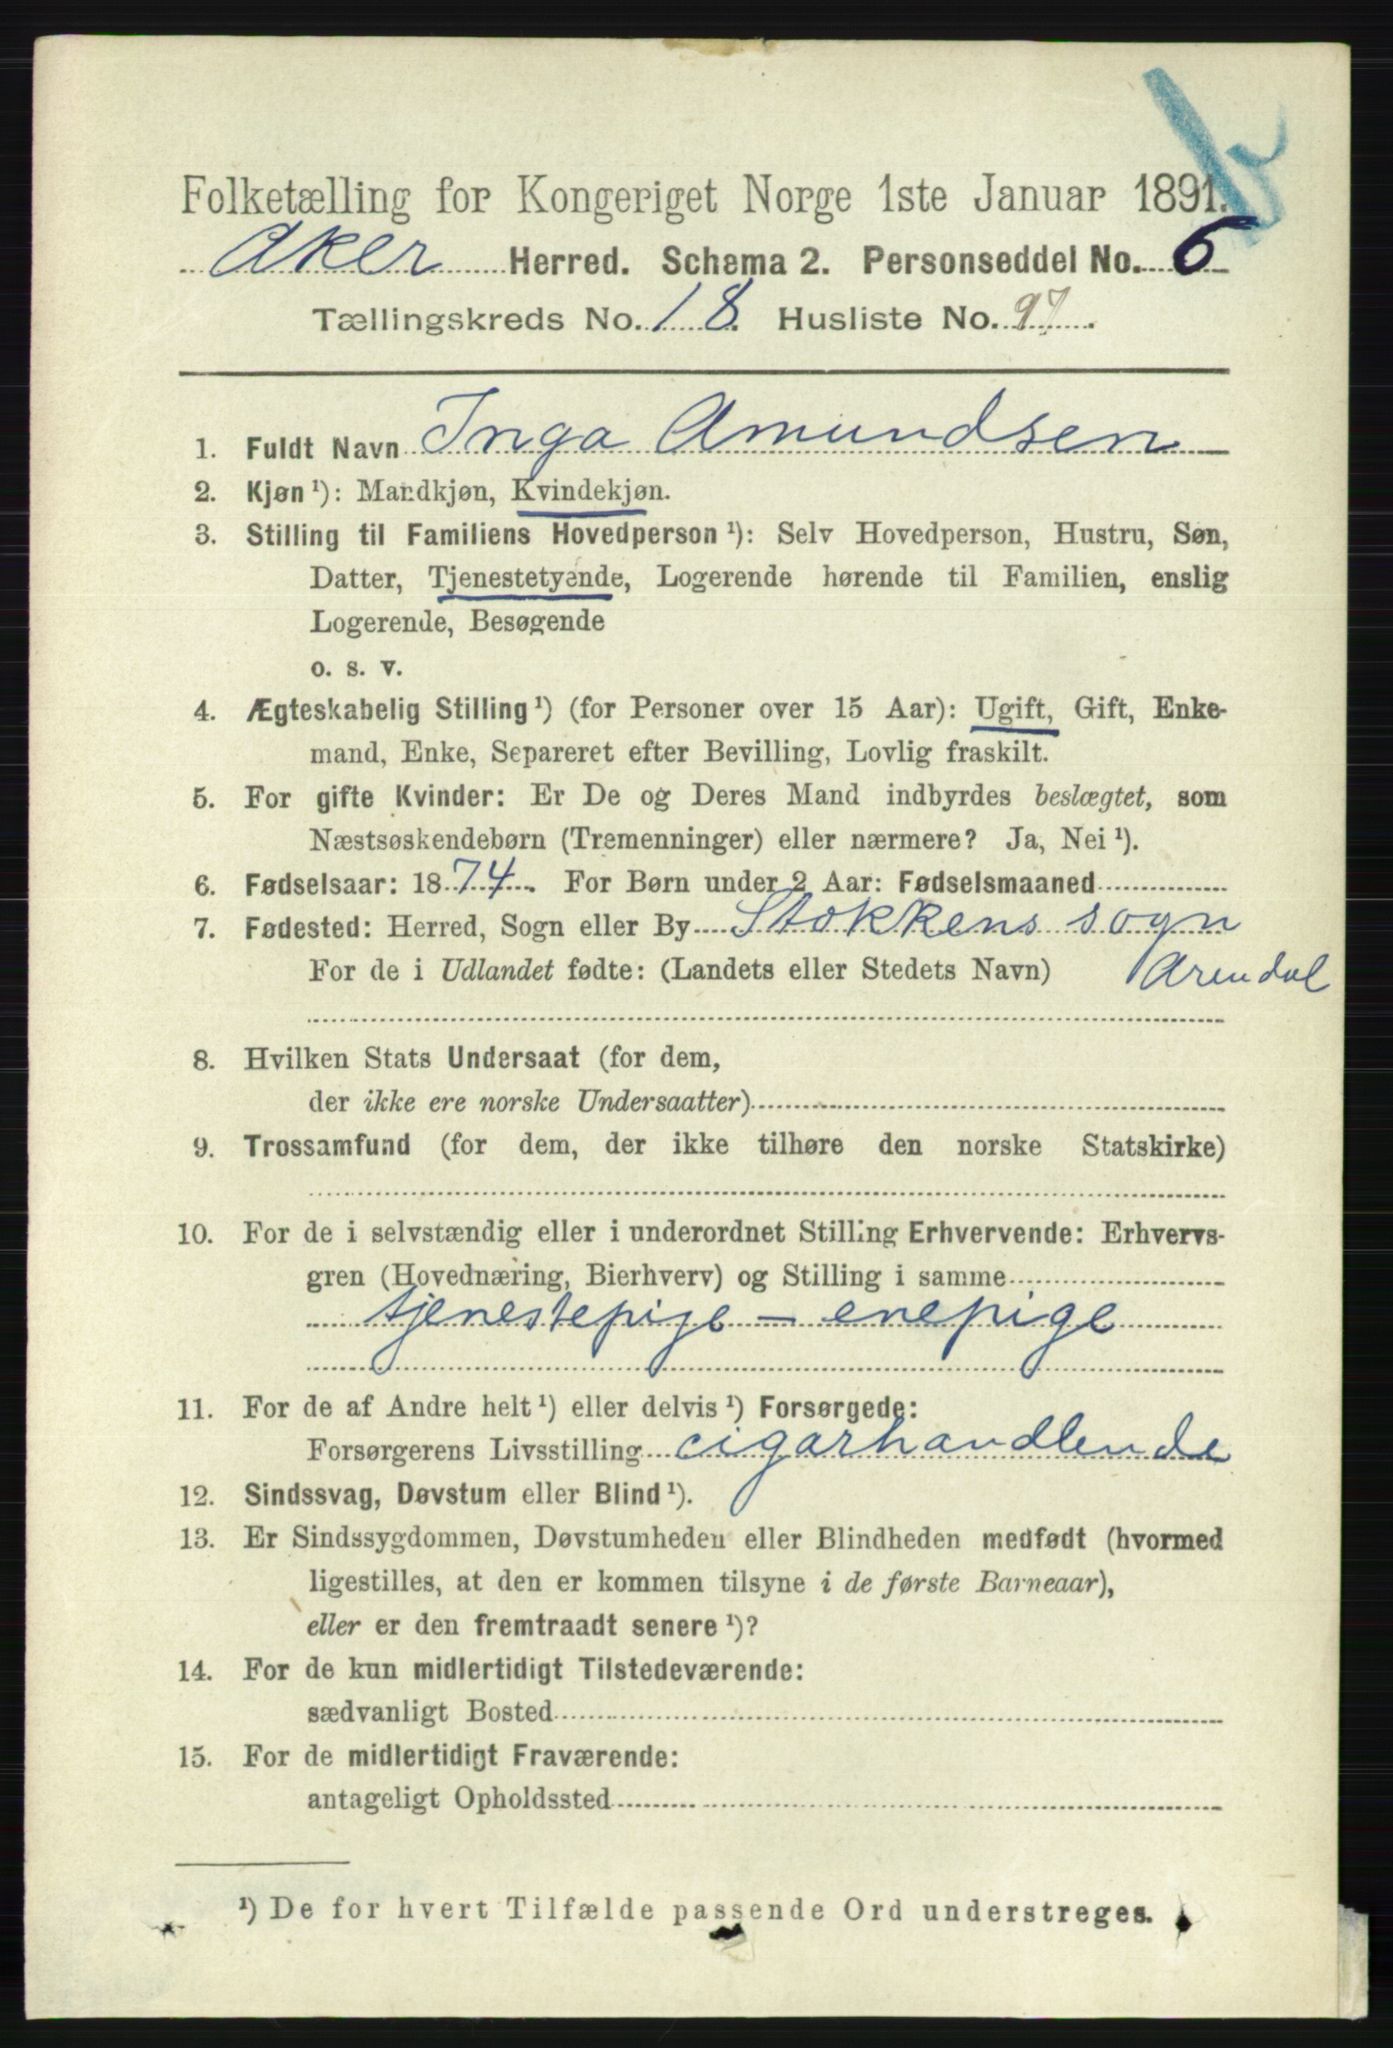 Folketælling for Kongeriget Norge 1ste Januar 1891.
Aker Herred. Schema 2. Personseddel No. 6
Tællingskreds No. 18. Husliste No. 97.
1. Fuldt Navn Inga Amundsen
2. Kjøn ¹): Mandkjøn, Kvindekjøn.
3. Stilling til Familiens Hovedperson ¹): Selv Hovedperson, Hustru, Søn,
Datter, Tjenestetyende, Logerende hørende til Familien, enslig
Logerende, Besøgende
o. s. v.
4. Ægteskabelig Stilling ¹) (for Personer over 15 Aar): Ugift, Gift, Enke-
mand, Enke, Separeret efter Bevilling, Lovlig fraskilt.
5. For gifte Kvinder: Er De og Deres Mand indbyrdes beslægtet, som
Næstsøskendebørn (Tremenninger) eller nærmere? Ja, Nei ¹).
6. Fødselsaar: 1874. For Børn under 2 Aar: Fødselsmaaned
7. Fødested: Herred, Sogn eller By Stokkens sogn
For de i Udlandet fødte: (Landets eller Stedets Navn) Arendal
8. Hvilken Stats Undersaat (for dem,
der ikke ere norske Undersaatter)
9. Trossamfund (for dem, der ikke tilhøre den norske Statskirke)
10. For de i selvstændig eller i underordnet Stilling Erhvervende: Erhvervs-
gren (Hovednæring, Bierhverv) og Stilling i samme
tjenestepige - enepige
11. For de af Andre helt ¹) eller delvis ¹) Forsørgede:
Forsørgerens Livsstilling cigarhandlende
12. Sindssvag, Døvstum eller Blind ¹).
13. Er Sindssygdommen, Døvstumheden eller Blindheden medfødt (hvormed
ligestilles, at den er kommen tilsyne i de første Barneaar),
eller er den fremtraadt senere ¹)?
14. For de kun midlertidigt Tilstedeværende:
sædvanligt Bosted
15. For de midlertidigt Fraværende:
antageligt Opholdssted
¹) De for hvert Tilfælde passende Ord understreges.